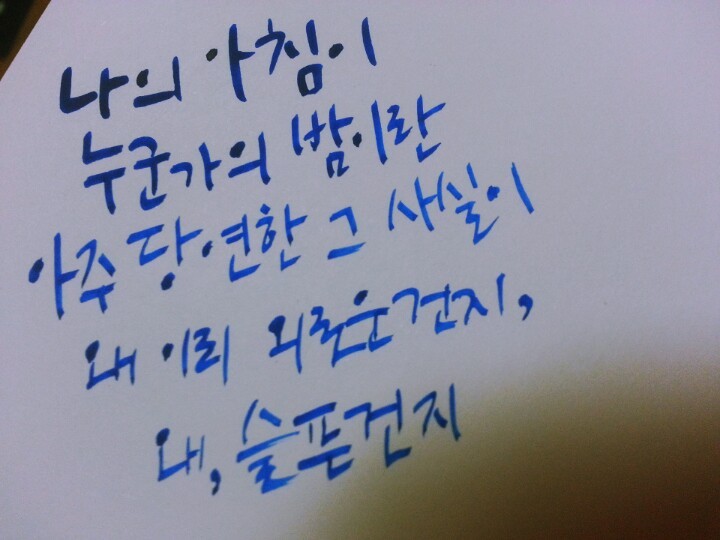 나의 아침이
누군가의 밤이란
아주 당연한 그 사실이
왜 이리 외로운건지,
왜, 슬픈건지